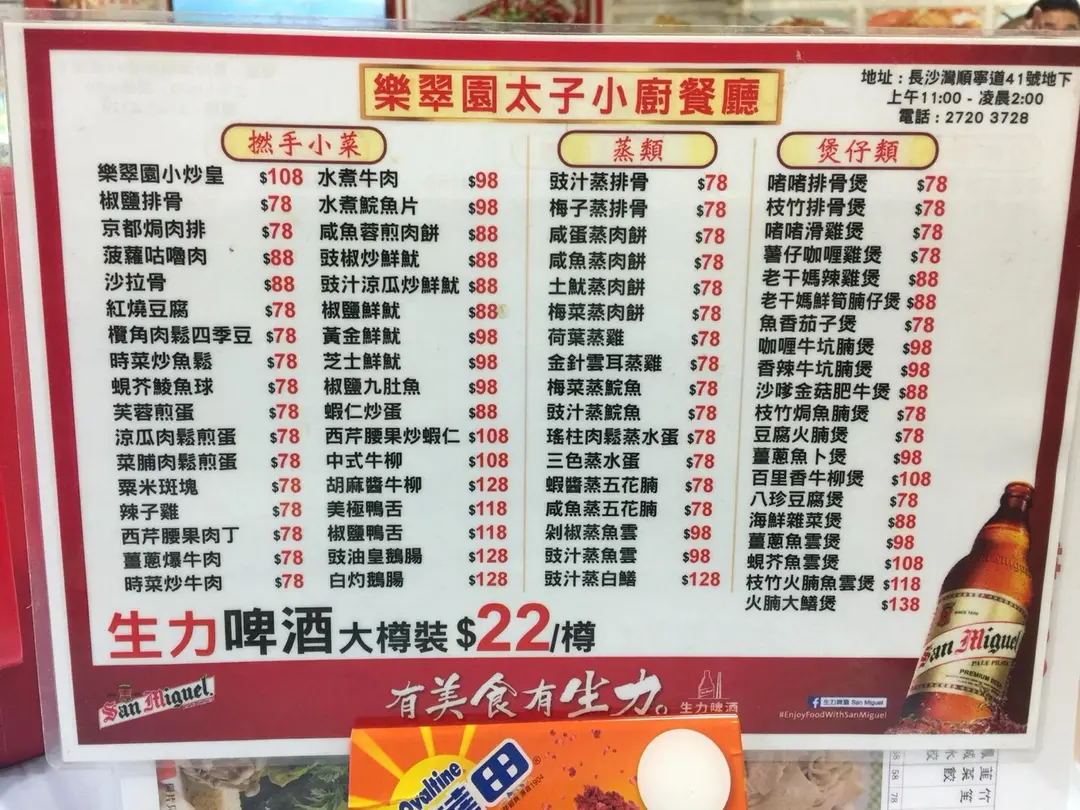 樂翠園太子小廚餐廳
地址：長沙灣順寧道41號地下
上午11:00 - 凌晨2:00
電話：2720 3728
撚手小菜
樂翠園小炒皇 $108
椒鹽排骨 $78
京都焗肉排 $78
菠蘿咕嚕肉 $88
沙拉骨 $88
紅燒豆腐 $78
欖角肉鬆四季豆 $78
時菜炒魚鬆 $78
蜆芥鯪魚球 $78
芙蓉煎蛋 $78
涼瓜肉鬆煎蛋 $78
菜脯肉鬆煎蛋 $78
粟米斑塊 $78
辣子雞 $78
西芹腰果肉丁 $78
薑蔥爆牛肉 $78
時菜炒牛肉 $78
水煮牛肉 $98
水煮鯇魚片 $98
咸魚蓉煎肉餅 $88
豉椒炒鮮魷 $88
豉汁涼瓜炒鮮魷 $88
椒鹽鮮魷 $88
黃金鮮魷 $98
芝士鮮魷 $98
椒鹽九肚魚 $98
蝦仁炒蛋 $88
西芹腰果炒蝦仁 $108
中式牛柳 $108
胡麻醬牛柳 $128
美極鴨舌 $118
椒鹽鴨舌 $118
豉油皇鵝腸 $128
白灼鵝腸 $128
蒸類
豉汁蒸排骨 $78
梅子蒸排骨 $78
咸蛋蒸肉餅 $78
咸魚蒸肉餅 $78
土魷蒸肉餅 $78
梅菜蒸肉餅 $78
荷葉蒸雞 $78
金針雲耳蒸雞 $78
梅菜蒸鯇魚 $78
豉汁蒸鯇魚 $78
瑤柱肉鬆蒸水蛋 $78
三色蒸水蛋 $78
蝦醬蒸五花腩 $78
咸魚蒸五花腩 $78
剁椒蒸魚雲 $98
豉汁蒸魚雲 $98
豉汁蒸白鱔 $128
煲仔類
啫啫排骨煲 $78
枝竹排骨煲 $78
啫啫滑雞煲 $78
薯仔咖喱雞煲 $78
老干媽辣雞煲 $88
老干媽鮮筍腩仔煲 $88
魚香茄子煲 $78
咖喱牛坑腩煲 $98
香辣牛坑腩煲 $98
沙嗲金菇肥牛煲 $88
枝竹焗魚腩煲 $78
豆腐火腩煲 $78
薑蔥魚卜煲 $98
百里香牛柳煲 $108
八珍豆腐煲 $78
海鮮雜菜煲 $88
薑蔥魚雲煲 $98
蜆芥魚雲煲 $108
枝竹火腩魚雲煲 $118
火腩大鱔煲 $138
生力啤酒大樽裝 $22/樽
San Miguel
有美食有生力。
生力啤酒
生力啤酒 San Miguel
#EnjoyFoodWithSanMiguel
San Miguel
PALE PILSEN
PREMIUM BEER
Ovaltine